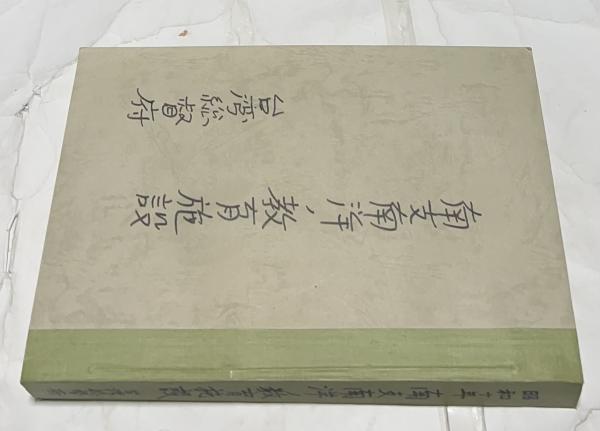 南支南洋ノ教育施設
台湾総督府
昭和十二年 南支南洋ノ教育施設 台湾総督府